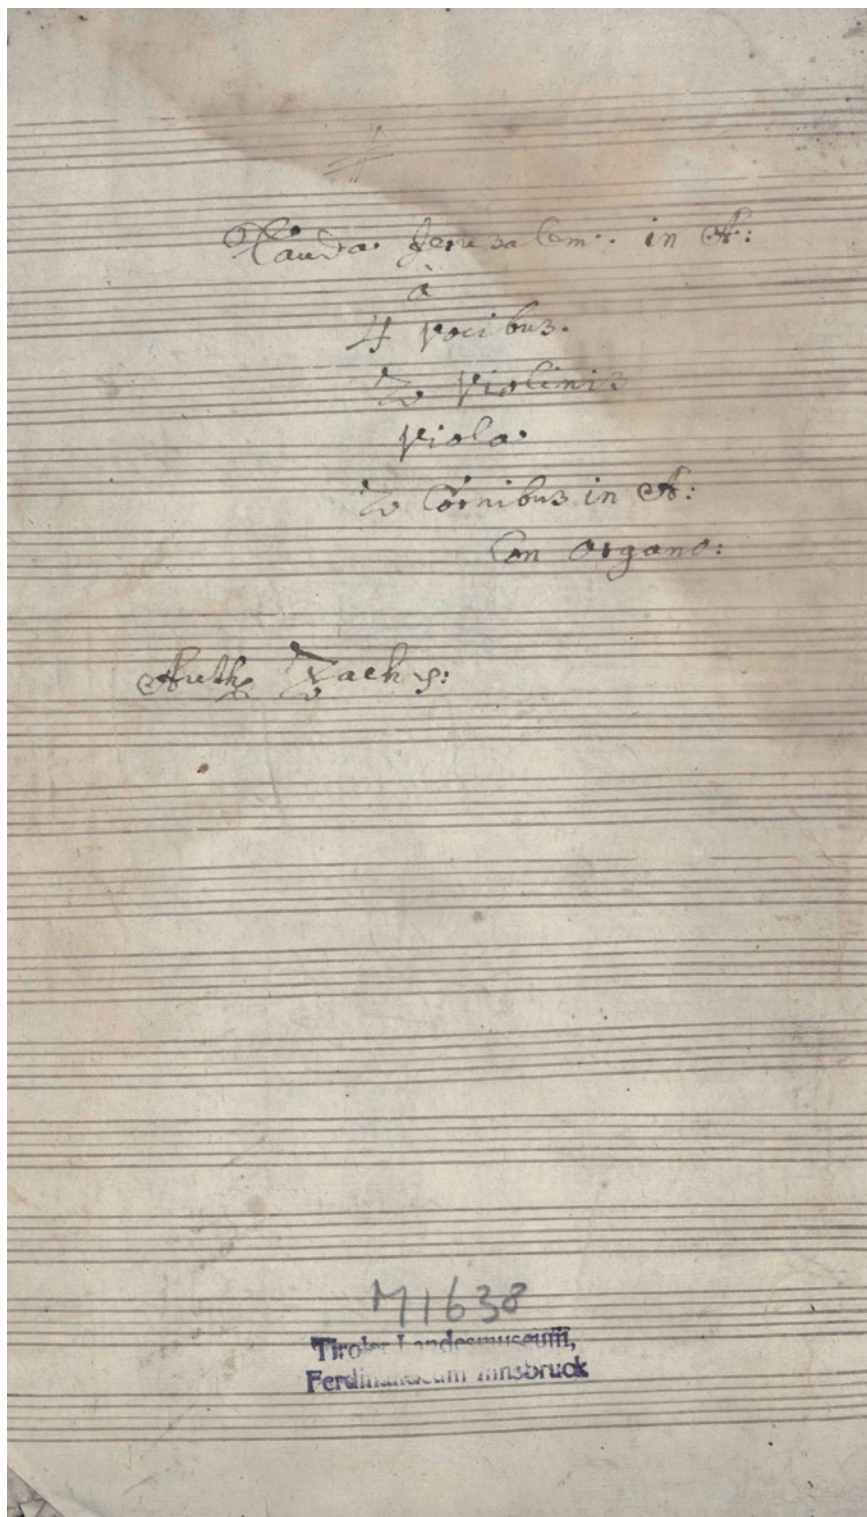 Lauda Jerusalem. in A:
à
4 Vocibus.
2 Violinis
Viola.
2 Cornibus in A:
Con Organo:
Auth Zach
M1638
Tiroler Landesmuseum,
Ferdinandeum Innsbruck